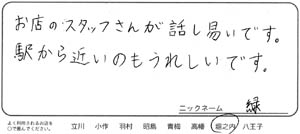 お店のスタッフさんが話し易いです。
駅から近いのもうれしいです。
ニックネーム 緑
よく利用されるお店を
○で囲んでください。
立川 小作 羽村 昭島 青梅 高幡 堀之内 八王子